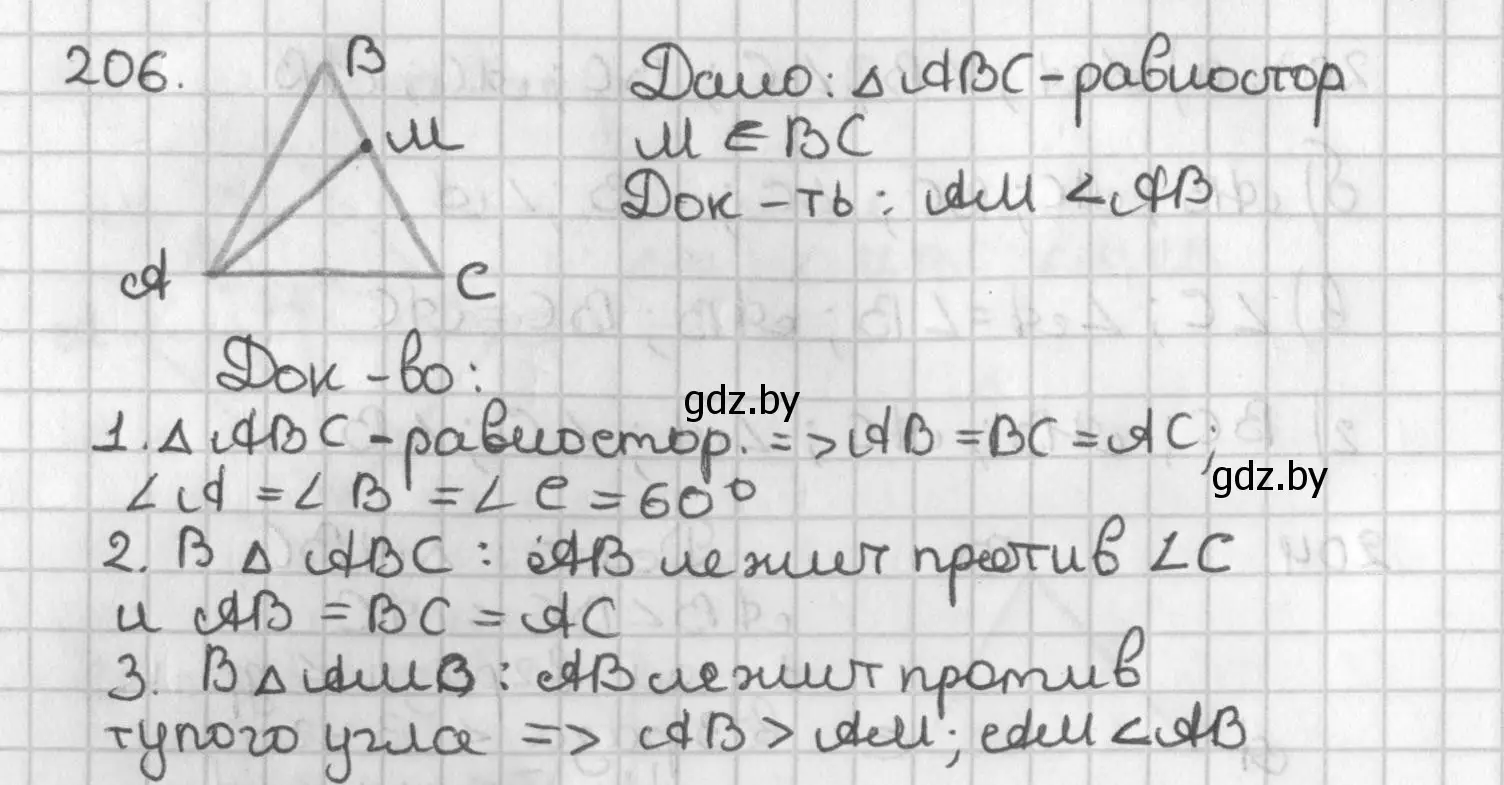 206.
B
M
A
C
Дано: △ABC-равностор
M ∈ BC
Док-ть: AM < AB
Док-во:
gdz.by
1. △ABC-равностор. => AB = BC = AC;
gdz.by
∠A = ∠B = ∠C = 60°
2. В △ ABC : AB лежит против ∠C
и AB = BC = AC
3. В △ AMB : AB лежит против
тупого угла => AB > AM; AM < AB